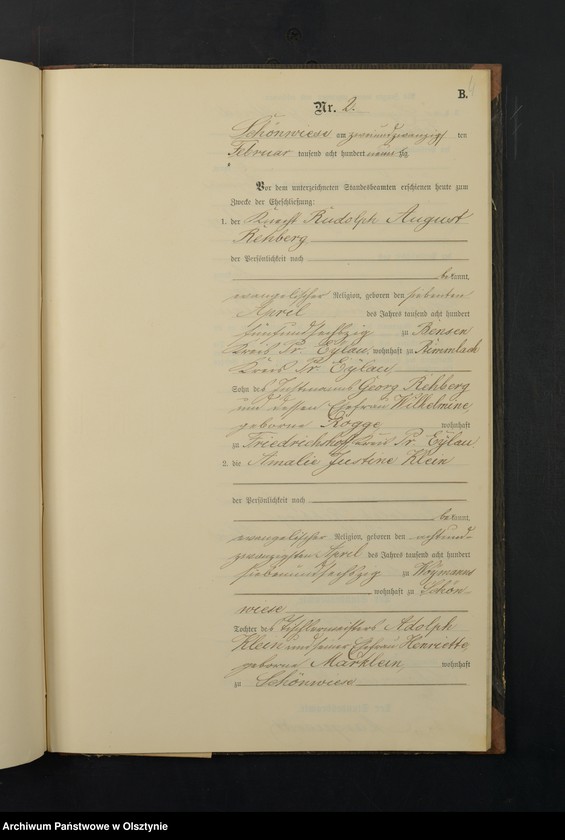 B.
Nr. 2.
Schönwiese am zweiundzwanzig ten
Februar tausend acht hundert neunzig.
Vor dem unterzeichneten Standesbeamten erschienen heute zum
Zwecke der Eheschließung:
1. der Knecht Rudolph August
Rehberg
der Persönlichkeit nach
bekannt,
evangelischer Religion, geboren den siebenten
April des Jahres tausend acht hundert
fünfundsechszig zu
Kreis Pr. Eylau, wohnhaft zu
Kreis Pr. Eylau
Sohn des Instmanns Georg Rehberg
und dessen Ehefrau Wilhelmine,
geborene Rogge wohnhaft
zu Friedrichshoff, Kreis Pr. Eylau
2. die Amalie Justine Klein
der Persönlichkeit nach
bekannt,
evangelischer Religion, geboren den achtund-
zwanzigsten April des Jahres tausend acht hundert
siebenundsechszig zu Woymanns
wohnhaft zu Schön-
wiese
Tochter des Tischlermeisters Adolph
Klein und seiner Ehefrau Henriette,
geborene Märklein, wohnhaft
zu Schönwiese
Archiwum Państwowe w Olsztynie